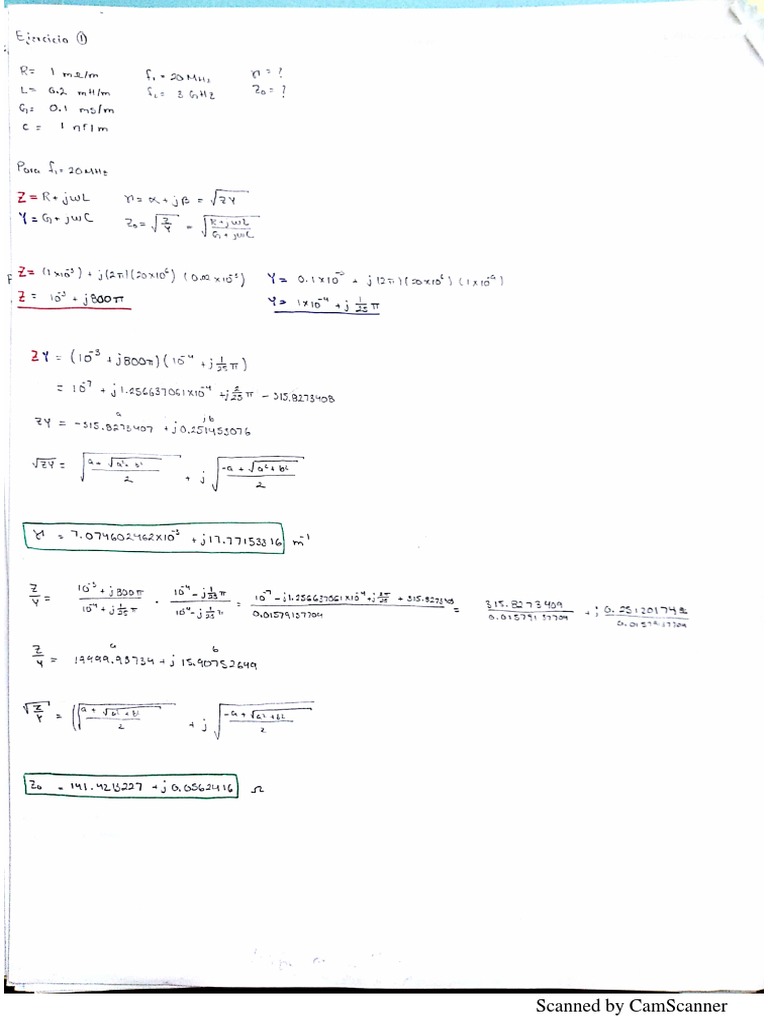 Ejercicio ①
R= 1 mΩ/m f₁ = 20 MHz γ = ?
L= 0.2 mH/m f₂ = 3 GHz Z₀ = ?
G= 0.1 mS/m
C = 1 nF/m
Para f₁ = 20 MHz
Z = R + jωL γ = α + jβ = √ZY
Y = G + jωC Z₀ = √(Z/Y) = √((R + jωL)/(G + jωC))
Z = (1x10⁻³) + j(2π)(20x10⁶) Y = 0.1x10⁻³ + j(2π)(20x10⁶)(1x10⁻⁹)
Z = 10⁻³ + j800π Y = 1x10⁻⁴ + j 1/25 π
ZY = (10⁻³ + j800π)(10⁻⁴ + j 1/25 π)
= 10⁻⁷ + j1.256637061x10⁻⁴ + j 2/25 π - 315.8273408
a jb
ZY = -315.8273407 + j0.251453076
√ZY = √((a + √(a² + b²))/2) + j √((-a + √(a² + b²))/2)
γ = 7.074602462x10⁻³ + j17.77153816 m⁻¹
Z/Y = (10⁻³ + j800π)/(10⁻⁴ + j 1/25 π) · (10⁻⁴ - j 1/25 π)/(10⁻⁴ - j 1/25 π) = (10⁻⁷ - j1.256637061x10⁻⁴ + j 2/25 π + 315.8273408)/0.01579137704 = 315.8273409/0.01579137704 + j 0.2512017492/0.01579137704
a b
Z/Y = 19999.93734 + j 15.90752649
√(Z/Y) = √((a + √(a² + b²))/2) + j √((-a + √(a² + b²))/2)
Z₀ = 141.4213227 + j0.0562416 Ω
Scanned by CamScanner